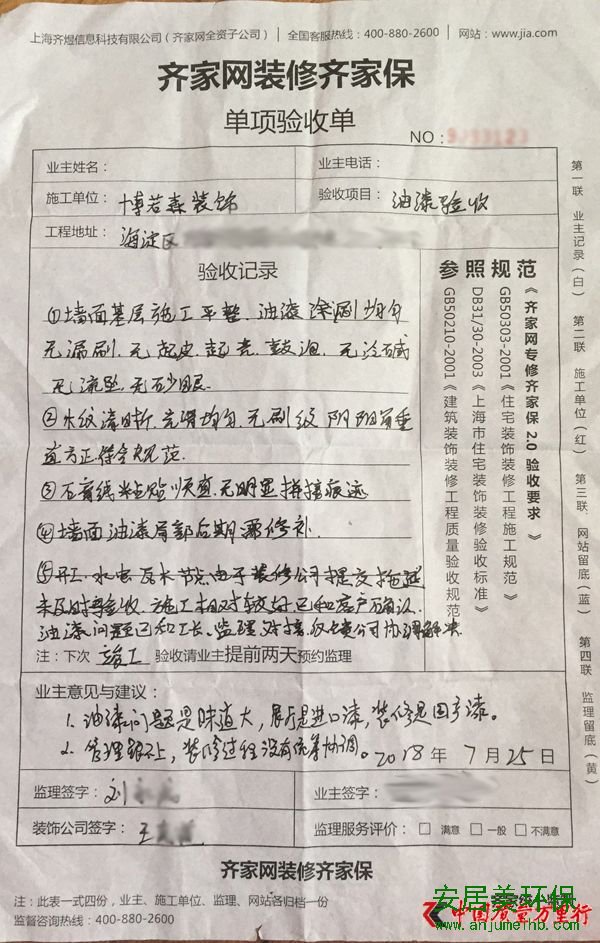 上海齐煜信息科技有限公司（齐家网全资子公司） | 全国客服热线：400-880-2600 | 网站：www.jia.com
齐家网装修齐家保
单项验收单
NO：
业主姓名： 业主电话：
施工单位：博若森装饰 验收项目：油漆验收
工程地址：海淀区
验收记录
①墙面基层施工平整，油漆涂刷均匀
无漏刷，无起皮，起壳，鼓泡，无泛碱
无流坠，无砂眼
②木纹清晰，光滑均匀，无刷纹 阴阳角垂
直方正符合规范．
③石膏线粘贴顺直，无明显拼接痕迹
④墙面油漆局部后期需修补．
⑤开工、水电、瓦木节点由于装修公司提交拖延
未及时验收，施工相对较好已和客户确认，
油漆问题已和工长、监理对接，负责公司协调解决
注：下次 竣工 验收请业主提前两天预约监理
参照规范
《齐家网专修齐家保2.0 验收要求》
GB50303-2001《住宅装饰装修工程施工规范》
DB31/30-2003《上海市住宅装饰装修验收标准》
GB50210-2001《建筑装饰装修工程质量验收规范》
第一联 业主记录（白） 第二联 施工单位（红） 第三联．网站留底（蓝） 第四联 监理留底（黄）
业主意见与建议：
1. 油漆问题是味道大，展厅是进口漆，装修是国产漆。
2. 管理跟不上，装修过程没有统筹协调。2018年 7月25日
监理签字：刘 业主签字：
装饰公司签字：王 监理服务评价： 满意 一般 不满意
齐家网装修齐家保
注：此表一式四份，业主、施工单位、监理、网站各归档一份
监督咨询热线：400-880-2600
安居美环保
中国质量万里行
www.anjumeihb.com